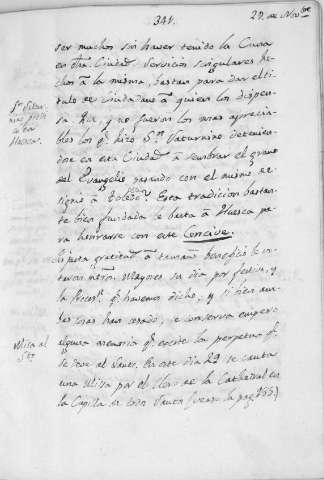 341.
29. de Nov.bre
ser muchos sin haver tenido la Cuna
en dha. Ciudad. Servicios singulares he-
chos à la misma, bastan para dar el ti-
tulo de Ciudadano à quien los dispen-
sa. Que, y no fueron los mas aprecia-
bles los q.e hizo S.n Saturnino detenien-
dose en esta Ciudad à sembrar el grano
del Evangelio pasando con el mismo de-
signio à Toledo? Esta tradicion bastan-
te bien fundada le basta à Huesca pa-
ra honrarse con este Concive.
S.n Satur-
nino predi-
có en
Huesca.
justa gratitud à tamaño beneficio
Mayores su dia por festivo, y
la Proces.n q.e havemos dicho, y si bien am-
bas cosas han cesado, se conserva empero
alguna memoria q.e excite la perpetua q.e
se deve al Santo. En este dia 29 se canta
una Misa por el Clero de la Cathedral en
la Capilla de dicho Santo (vease la pag. 155.)
Misa al
S.to